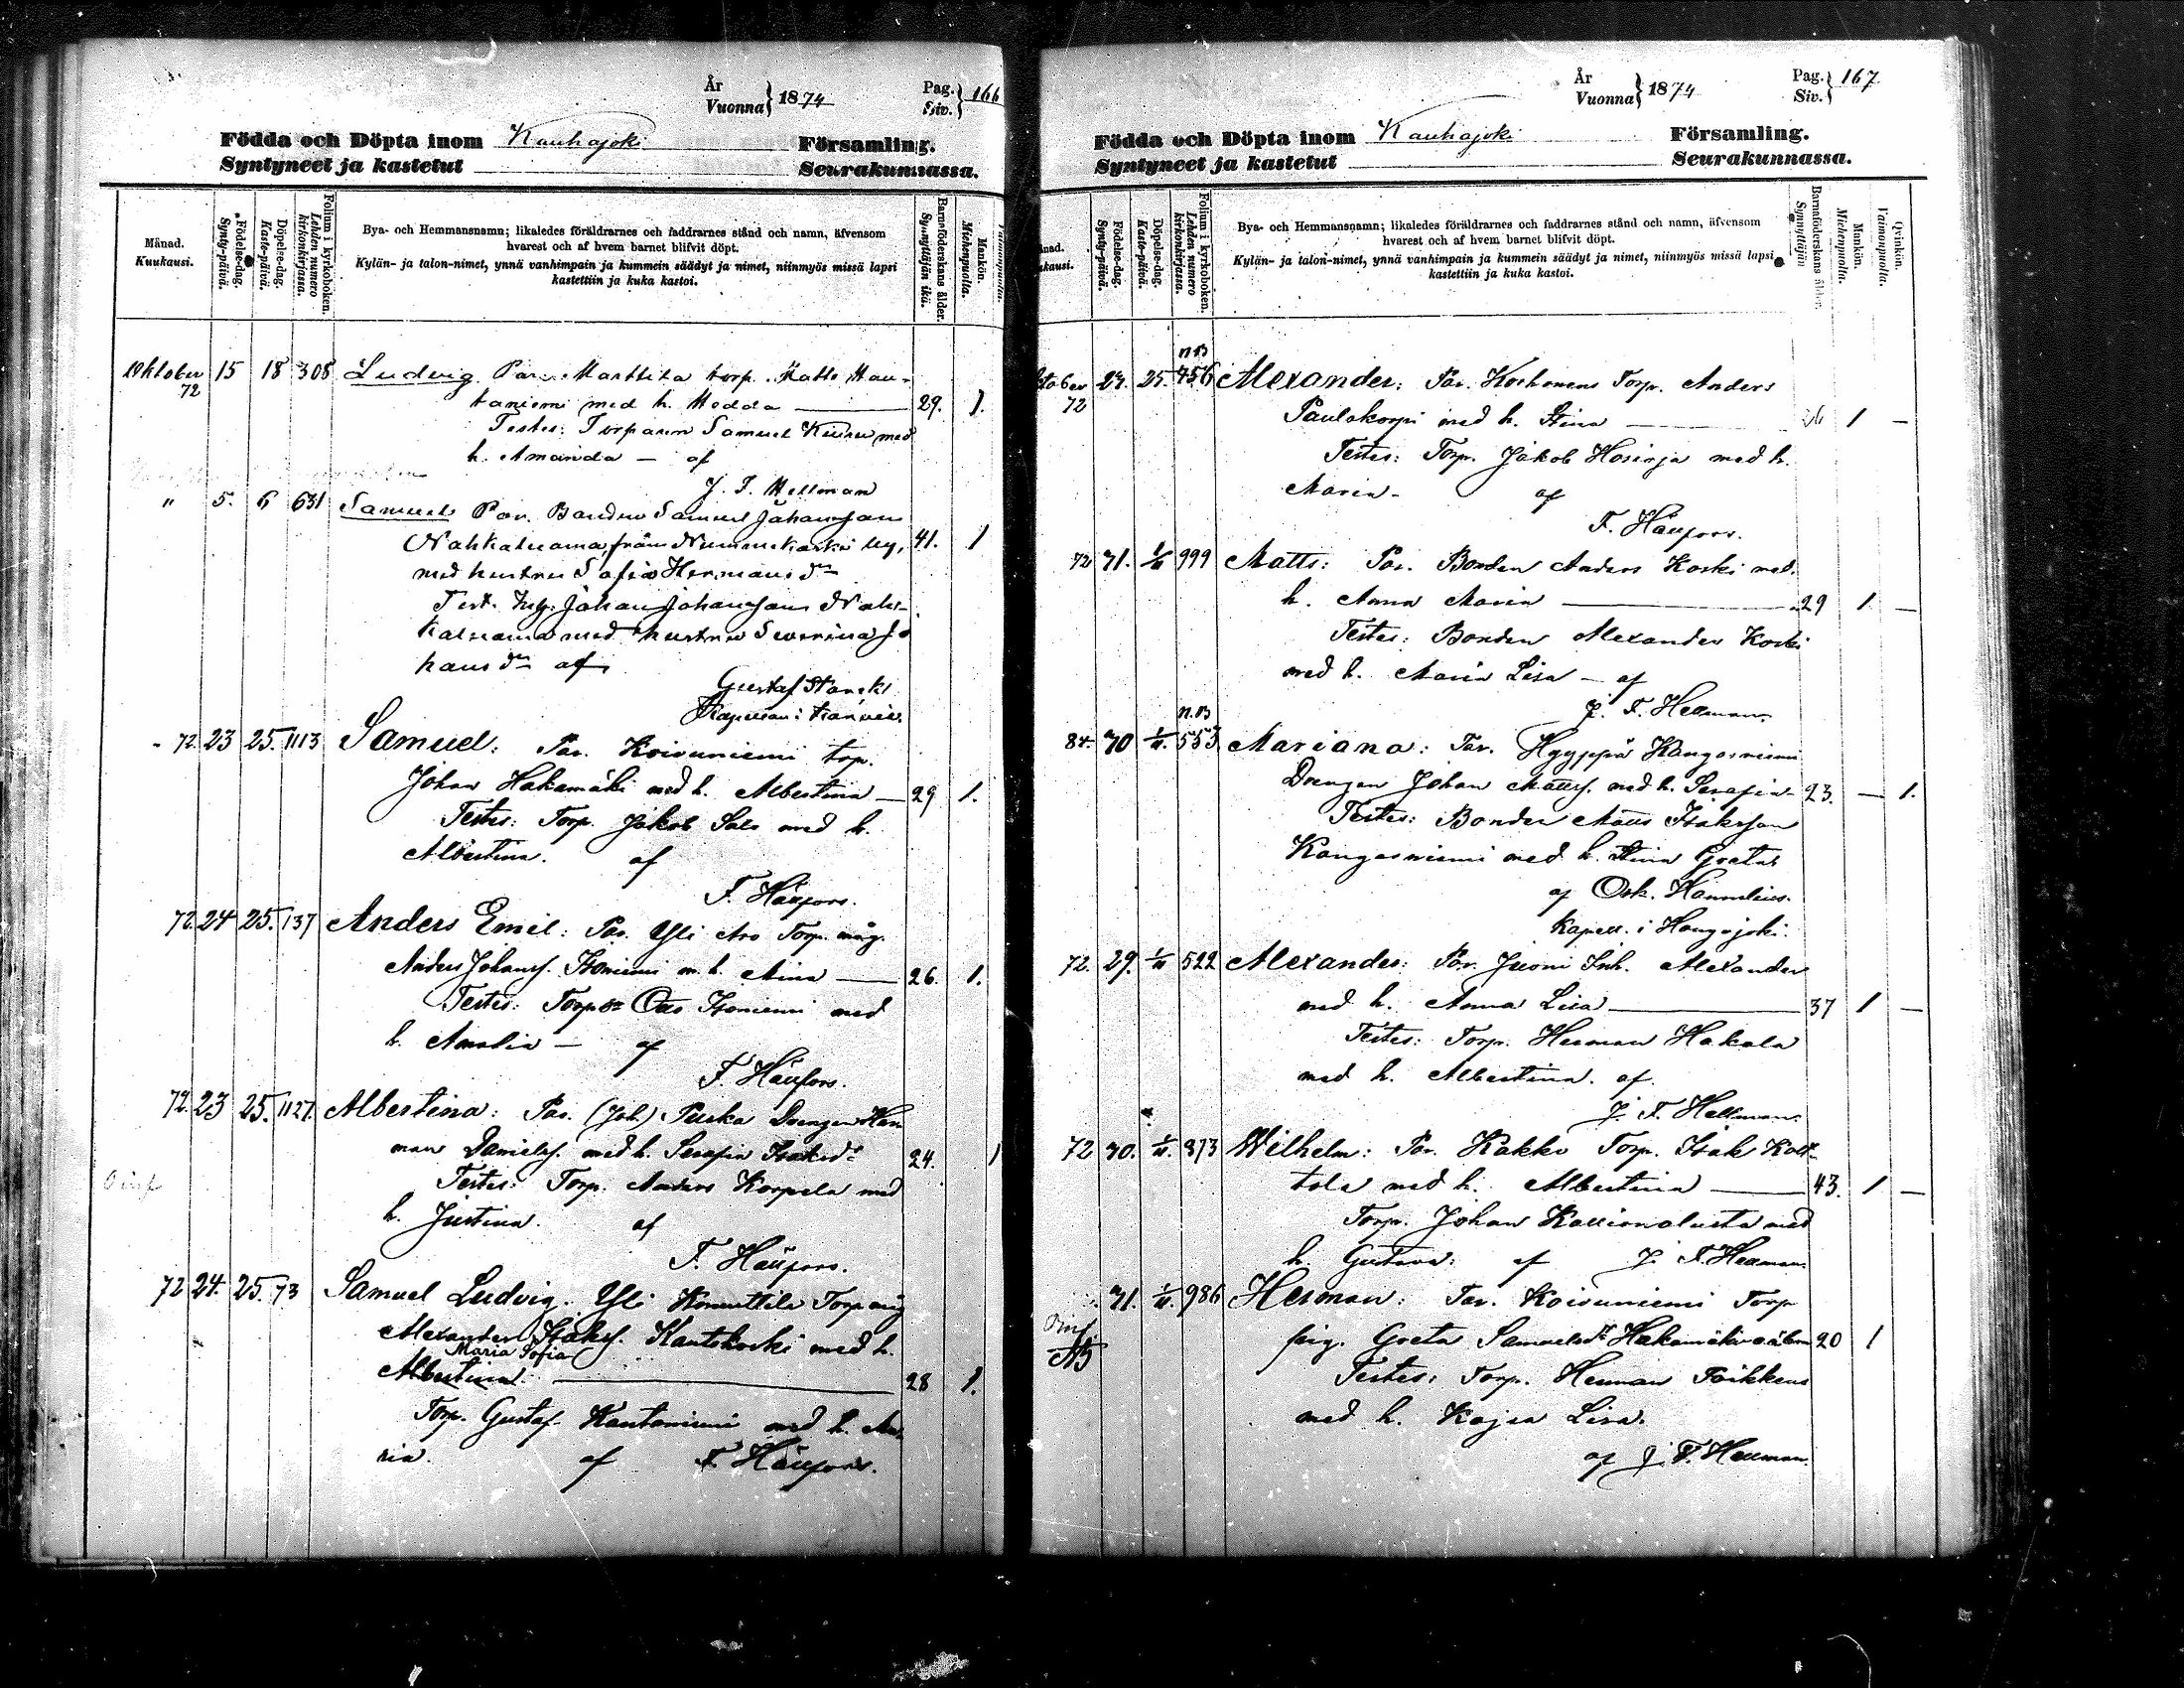 År
Vuonna } 1874
Pag.
Siv. } 166
Födda och Döpta inom Kauhajoki Församling.
Syntyneet ja kastetut Seurakunnassa.
Månad.
Kuukausi.
Födelse-dag.
Synty-päivä.
Döpelse-dag.
Kaste-päivä.
Folium i kyrkoboken.
Lehden numero kirkonkirjassa.
Bya- och Hemmansnamn; likaledes föräldrarnes och faddrarnes stånd och namn, äfvensom
hvarest och af hvem barnet blifvit döpt.
Kylän- ja talon-nimet, ynnä vanhimpain ja kummein säädyt ja nimet, niinmyös missä lapsi
kastettiin ja kuka kastoi.
Barnaföderskans ålder.
Synnyttäjän ikä.
Mankön.
Miehenpuolta.
Oktober 15 18 308 Ludvig Par. Marttila torp. Matts Hau-
72
taniemi med h. Hedda 29. 1.
Testes: Torparen Samuel Kiuru med
h. Amanda — af
J. F. Hellman
" 5. 6 631 Samuel Par. Bonden Samuel Johansson
Nahkaluoma, från 41. 1
med hustru Sofia Hermansdr
Test. Johan Johansson Nah-
kaluoma med hustru Severina Jo
hansdr af
Gustaf
72. 23 25. 1113 Samuel: Par. Koivuniemi trp.
Johan Hakamäki med h. Albertina — 29 1.
Testes: Torp. Jakob Salo med h.
Albertina. af
F. Hällfors.
72. 24 25. 137 Anders Emil: Par. Yli Aro Torp. måg.
Anders Johanss. Isoniemi m. h. Aina — 26. 1.
Testes: Torp. Otto Isoniemi med
h. Amalia — af
F. Hällfors.
72. 23 25. 1127. Albertina: Par. (Joh.) Puska Drengen Her
man Daniels. med h. Serafia Isaksdr 24. 1
Testes: Torp. Anders Korpela med
h. Justina. af
F. Hällfors.
72 24. 25. 73 Samuel Ludvig. Yli Knuuttila Torp. måg
Alexander Isaks. Kantokoski med h.
Maria Sofia
Albertina. 28 1.
Torp. Gustaf Kantoniemi med h. Ma-
ria. af F. Hällfors.
År
Vuonna } 1874
Pag.
Siv. } 167
Födda och Döpta inom Kauhajoki Församling.
Syntyneet ja kastetut Seurakunnassa.
Födelse-dag.
Synty-päivä.
Döpelse-dag.
Kaste-päivä.
Folium i kyrkoboken.
Lehden numero kirkonkirjassa.
Bya- och Hemmansnamn; likaledes föräldrarnes och faddrarnes stånd och namn, äfvensom
hvarest och af hvem barnet blifvit döpt.
Kylän- ja talon-nimet, ynnä vanhimpain ja kummein säädyt ja nimet, niinmyös missä lapsi
kastettiin ja kuka kastoi.
Barnaföderskans ålder.
Synnyttäjän
Mankön.
Miehenpuolta.
Qvinkön.
Vaimonpuolta.
n.B
25. 456 Alexander: Par. Torp. Anders
72
Paulakorpi med h. Stina — 1 —
Testes: Torp. Jakob Hosioja med h.
Maria — af
F. Hällfors.
72 31. 1/11 999 Matts: Par. Bonden Anders Koski med
h. Anna Maria — 29 1. —
Testes: Bonden Alexander Koski
med h. Maria Lisa — af
J. F. Hellman.
n.B
84. 30 1/11. 553 Mariana: Par. Hyyppä Kangasniemi
Drengen Johan Matts. med h. Serafia — 23. — 1.
Testes: Bonden Matts Isaksson
Kangasniemi med h. Stina Greta
af Osk. Hammlius.
Kapell. i
72. 29. 1/11 522 Alexander: Par. Juoni Inh. Alexander
med h. Anna Lisa — 37 1 —
Testes: Torp. Herman Hakala
med h. Albertina. af
J. F. Hellman.
72 30. 1/11. 873 Wilhelm: Par. Kakko Torp. Isak Kolt-
tola med h. Albertina — 43. 1 —
Torp. Johan Kallionalusta med
h. Gustava: af J. F. Hellman
31. 1/11. 986 Herman: Par. Koivuniemi Torp
pig. Greta Samuelsdr Hakamäki 20 1
Testes: Torp. Herman Toikkens
med h. Kajsa Lisa.
af J. F. Hellman.